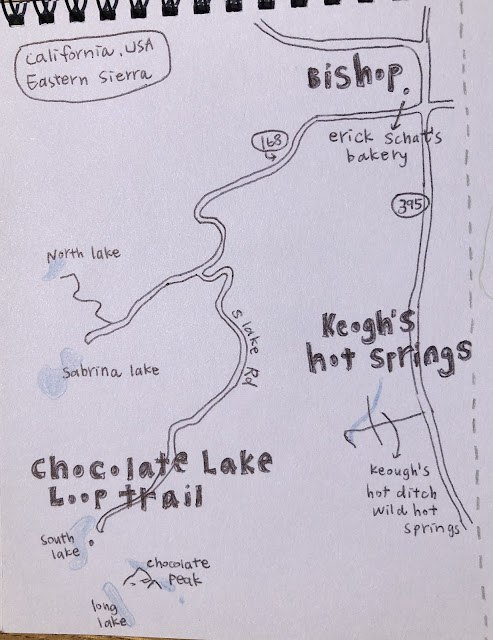 California, USA
Eastern Sierra
Bishop
erick Schat's
bakery
168
395
North lake
S lake Rd
Sabrina lake
Keogh's
hot springs
Chocolate Lake
Loop trail
keough's
hot ditch
wild hot
springs
South
lake
chocolate
peak
long
lake